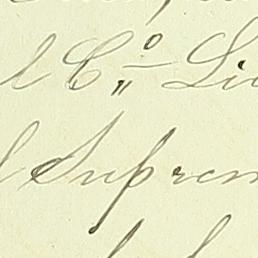 l C.º Lic
l Suprem